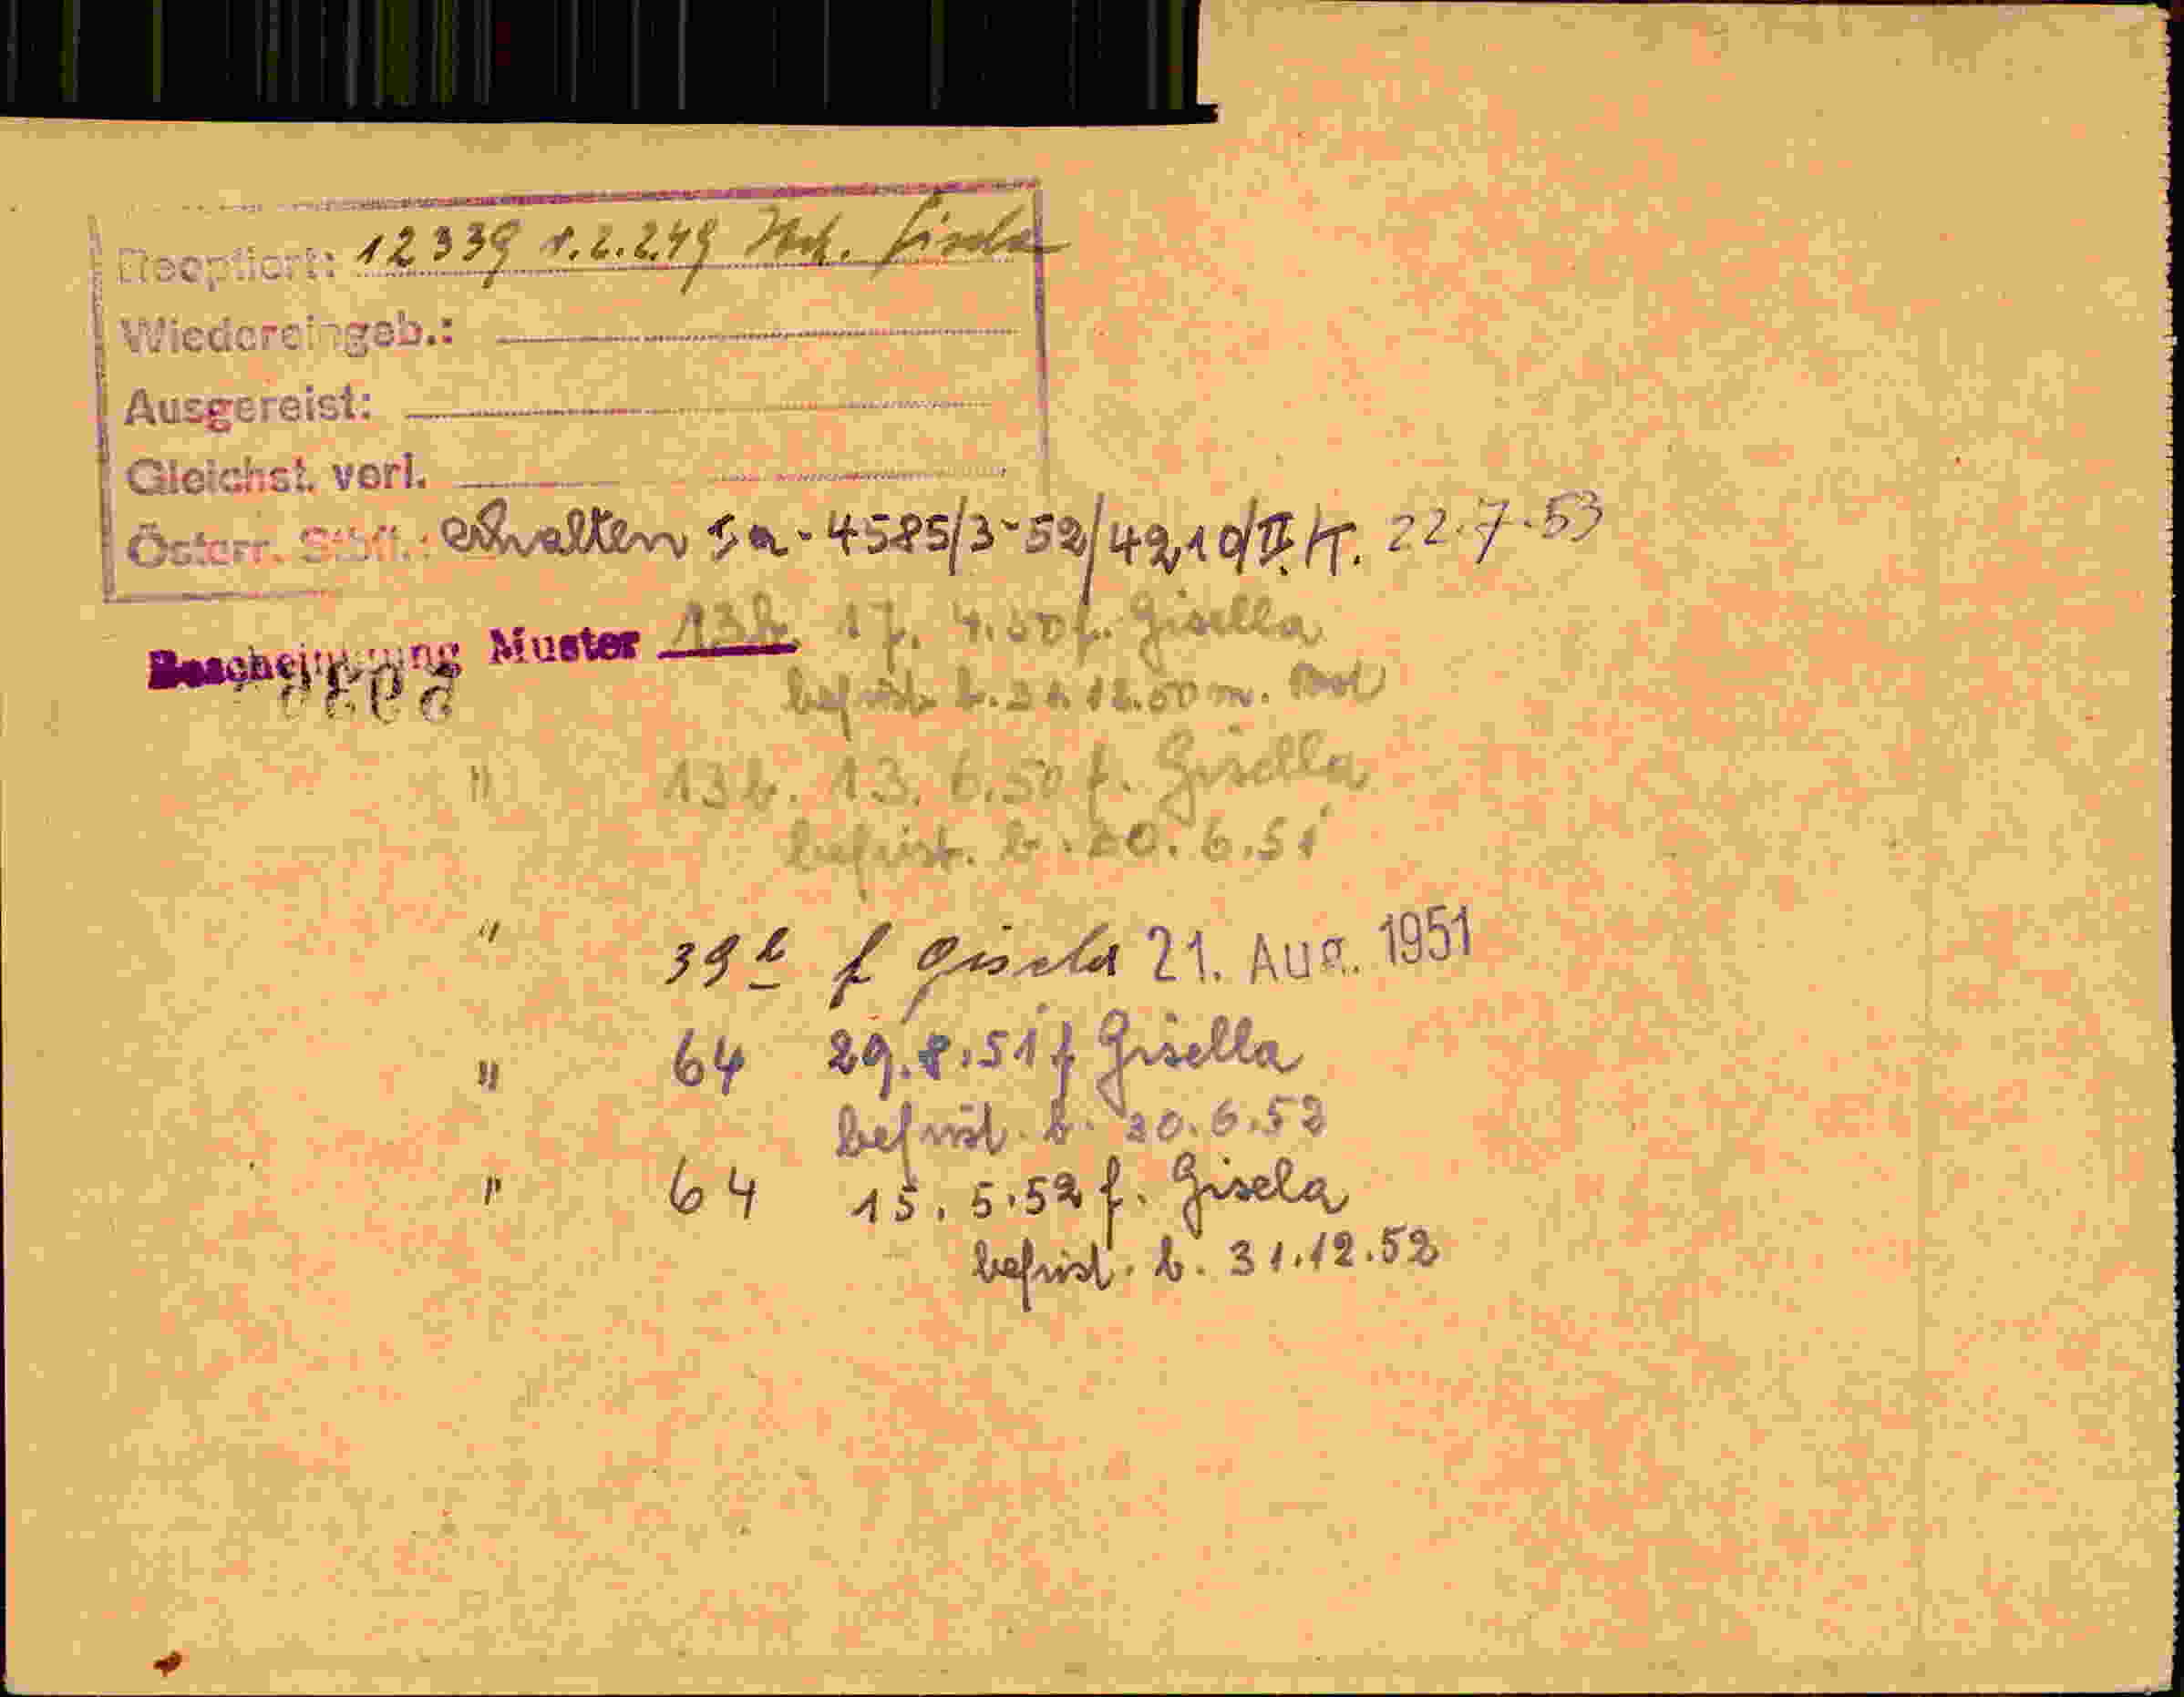 Reoptiert: 12339 v. 2.2.49 Gisela
Wiedereingeb.:
Ausgereist:
Gleichst. verl.
Österr. Stbft.: erhalten Ia-4585/3-52/4210/II/T. 22.7.53
Bescheinigung Muster 13b. 17. 4.50 f. Gisella
befrist. b. 31.12.50 m.
" 13b. 13. 6.50 f. Gisella
befrist. b. 30. 6.51
" 39b f Gisela 21. Aug. 1951
" 64 29.8.51 f Gisella
befrist. b. 30.6.52
" 64 15. 5.52 f. Gisela
befrist. b. 31.12.52